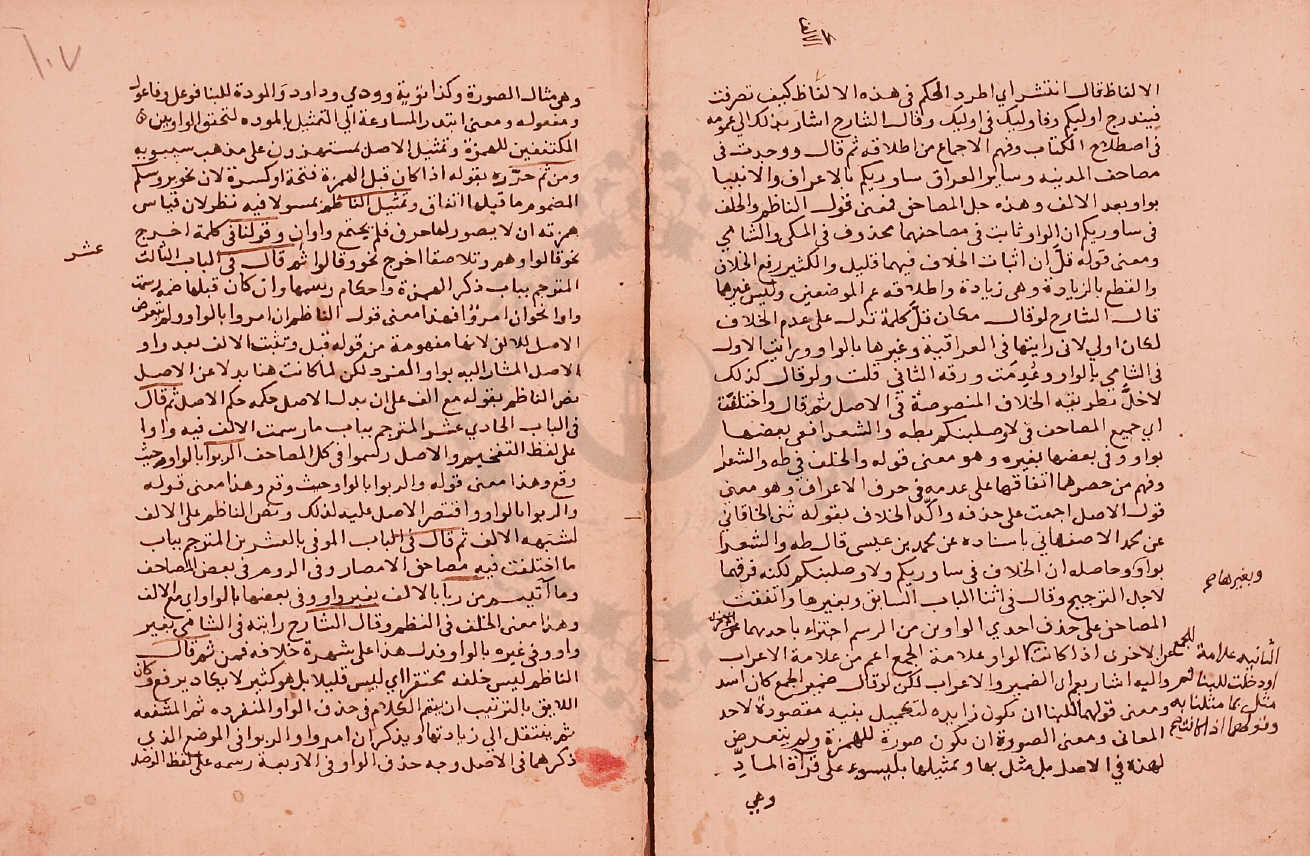 الالفاظ قال انتشر اي اطرد الحكم في هذه الالفاظ كيف تصرفت
فيندرج اوليكم وفاوليك في اوليك وقال الشارح اشار بذلك الي عمومه
في اصطلاح الكتاب وفهم الاجماع من اطلاقه ثم قال ووجدت في
مصاحف المدينه وساير العراق ساوريكم بالاعراف والانبيا
بواو بعد الالف وهذه جل المصاحف فمعنى قول الناظم والخلف
في ساوريكم ان الواو ثابت في مصاحفهما محذوف في المكي والشامي
ومعنى قوله قلّ ان اثبات الخلاف فيهما قليل والكثير رفع الخلاف
والقطع بالزيادة وهي زيادة واطلاقه عم الموضعين وليس غيرها
قال الشارح لو قال مكان قلّ كلمة تدل على عدم الخلاف
لكان اولي لاني رايتها في العراقية وغيرها بالواو ورايت الاول
في الشامي بالواو وعُدمت ورقه الثاني قلت ولو قال كذلك
لاخلّ بطريقه الخلاف المنصوصة في الاصل ثم قال واختلفت
اي جميع المصاحف في لاوصلبنكم بطه والشعرا ففي بعضها
بواو وفي بعضها بغيره وهو معنى قوله والخلف في طه والشعرا
وفهم من حصرها اتفاقها على عدمه في حرف الاعراف وهو معنى
قول الاصل اجمعت على حذفه واكّد الخلاف بقوله ثنى الخاقاني
عن محمد الاصفهاني باسناده عن محمد بن عيسى قال طه والشعرا
بواو وحاصله ان الخلاف في ساوريكم ولاوصلبنكم لكنه فرقهما
لاجل الترجيح وقال في اثنا الباب السابق وبغيرها واتفقت
المصاحف على حذف احدي الواوين من الرسم اجتزاء باحديهما
عن الاخرى اذا كانت الواو علامة الجمع اعم من علامة الاعراب
واليه اشار بعم اي الضمير والاعراب لكن لو قال ضمير الجمع كان اسد
ومعنى قولهما للبنا ان تكون زايدة لتحصيل بنيه مقصورة لاحد
المعاني ومعنى الصورة ان يكون صورة للهمزة ولم يتعرض
لهذه في الاصل بل مثل بها وتمثيلها بليسوء على قرآة المادِّ
وهي
وبغيرها صح
الثانيه علامة للجمع
او دخلت للبنا
مثل بما مثلنا به
١٠٧
وهي مثال الصورة وكذا تؤية وودي وداود والمودة للبنا فوعل وفاعول
ومفعوله ومعنى ابتدر المسارعة الي التمثيل بالموده لتحقق الواوين
المكتنفين للهمزة وتمثيل الاصل بمستهزون على مذهب سيبويه
ومن ثم حرّره بقوله اذا كان قبل الهمزة فتحة او كسرة لان نحو بروسكم
المضموم ما قبلها اتفاق وتمثيل الناظم بمسولا فيه نظر لان قياس
همزته ان لا يصور لها حرف فلم يجتمع واوان وقولنا في كلمة اخرج
نحو قالوا وهم وتلاصقا اخرج نحو وقالوا ثم قال في الباب الثالث
عشر
المترجم بباب ذكر الهمزة واحكام رسمها وان كان قبلها ضمه رسمت
واوا نحو ان امرؤا فهذا معنى قول الناظم ان امروا بالواو ولم يتعرض
الاصل للالف لانها مفهومة من قوله قبل وتثبت الالف بعد واو
الاصل المشار اليه بواو المفرد لكن لما كانت هنا بدلا عن الاصل
نص الناظم بقوله مع الف على ان بدل الاصل حكمه حكم الاصل ثم قال
في الباب الحادي عشر المترجم بباب ما رسمت الالف فيه واوا
على لفظ التفخيم والاصل رسموا في كل المصاحف الربوا بالواو حيث
وقع وهذا معنى قوله والربوا بالواو حيث وقع وهذا معنى قوله
والربوا بالواو واقتصر الاصل عليه لذلك ونص الناظم على الالف
لشبهه الالف ثم قال في الباب الموفي بالعشرين المترجم بباب
ما اختلفت فيه مصاحف الامصار وفي الروم في بعض المصاحف
وما آتيتم من ربا بالالف بغير واو وفي بعضها بالواو اي مع الالف
وهذا معنى الخلف في النظم وقال الشارح رايته في الشامي بغير
واو وفي غيره بالواو فدل هذا على شهرة خلافه فمن ثم قال
الناظم ليس خلفه محتقرا اي ليس قليلا بل هو كثير لا يكاد يرفع وكان
اللايق بالترتيب ان يتم الكلام في حذف الواو المنفرده ثم المشفعه
ثم ينتقل الى زيادتها ويذكر ان امروا والربوا في الموضع الذي
ذكرهما في الاصل وجه حذف الواو في الاربعة رسمه على لفظ الوصل